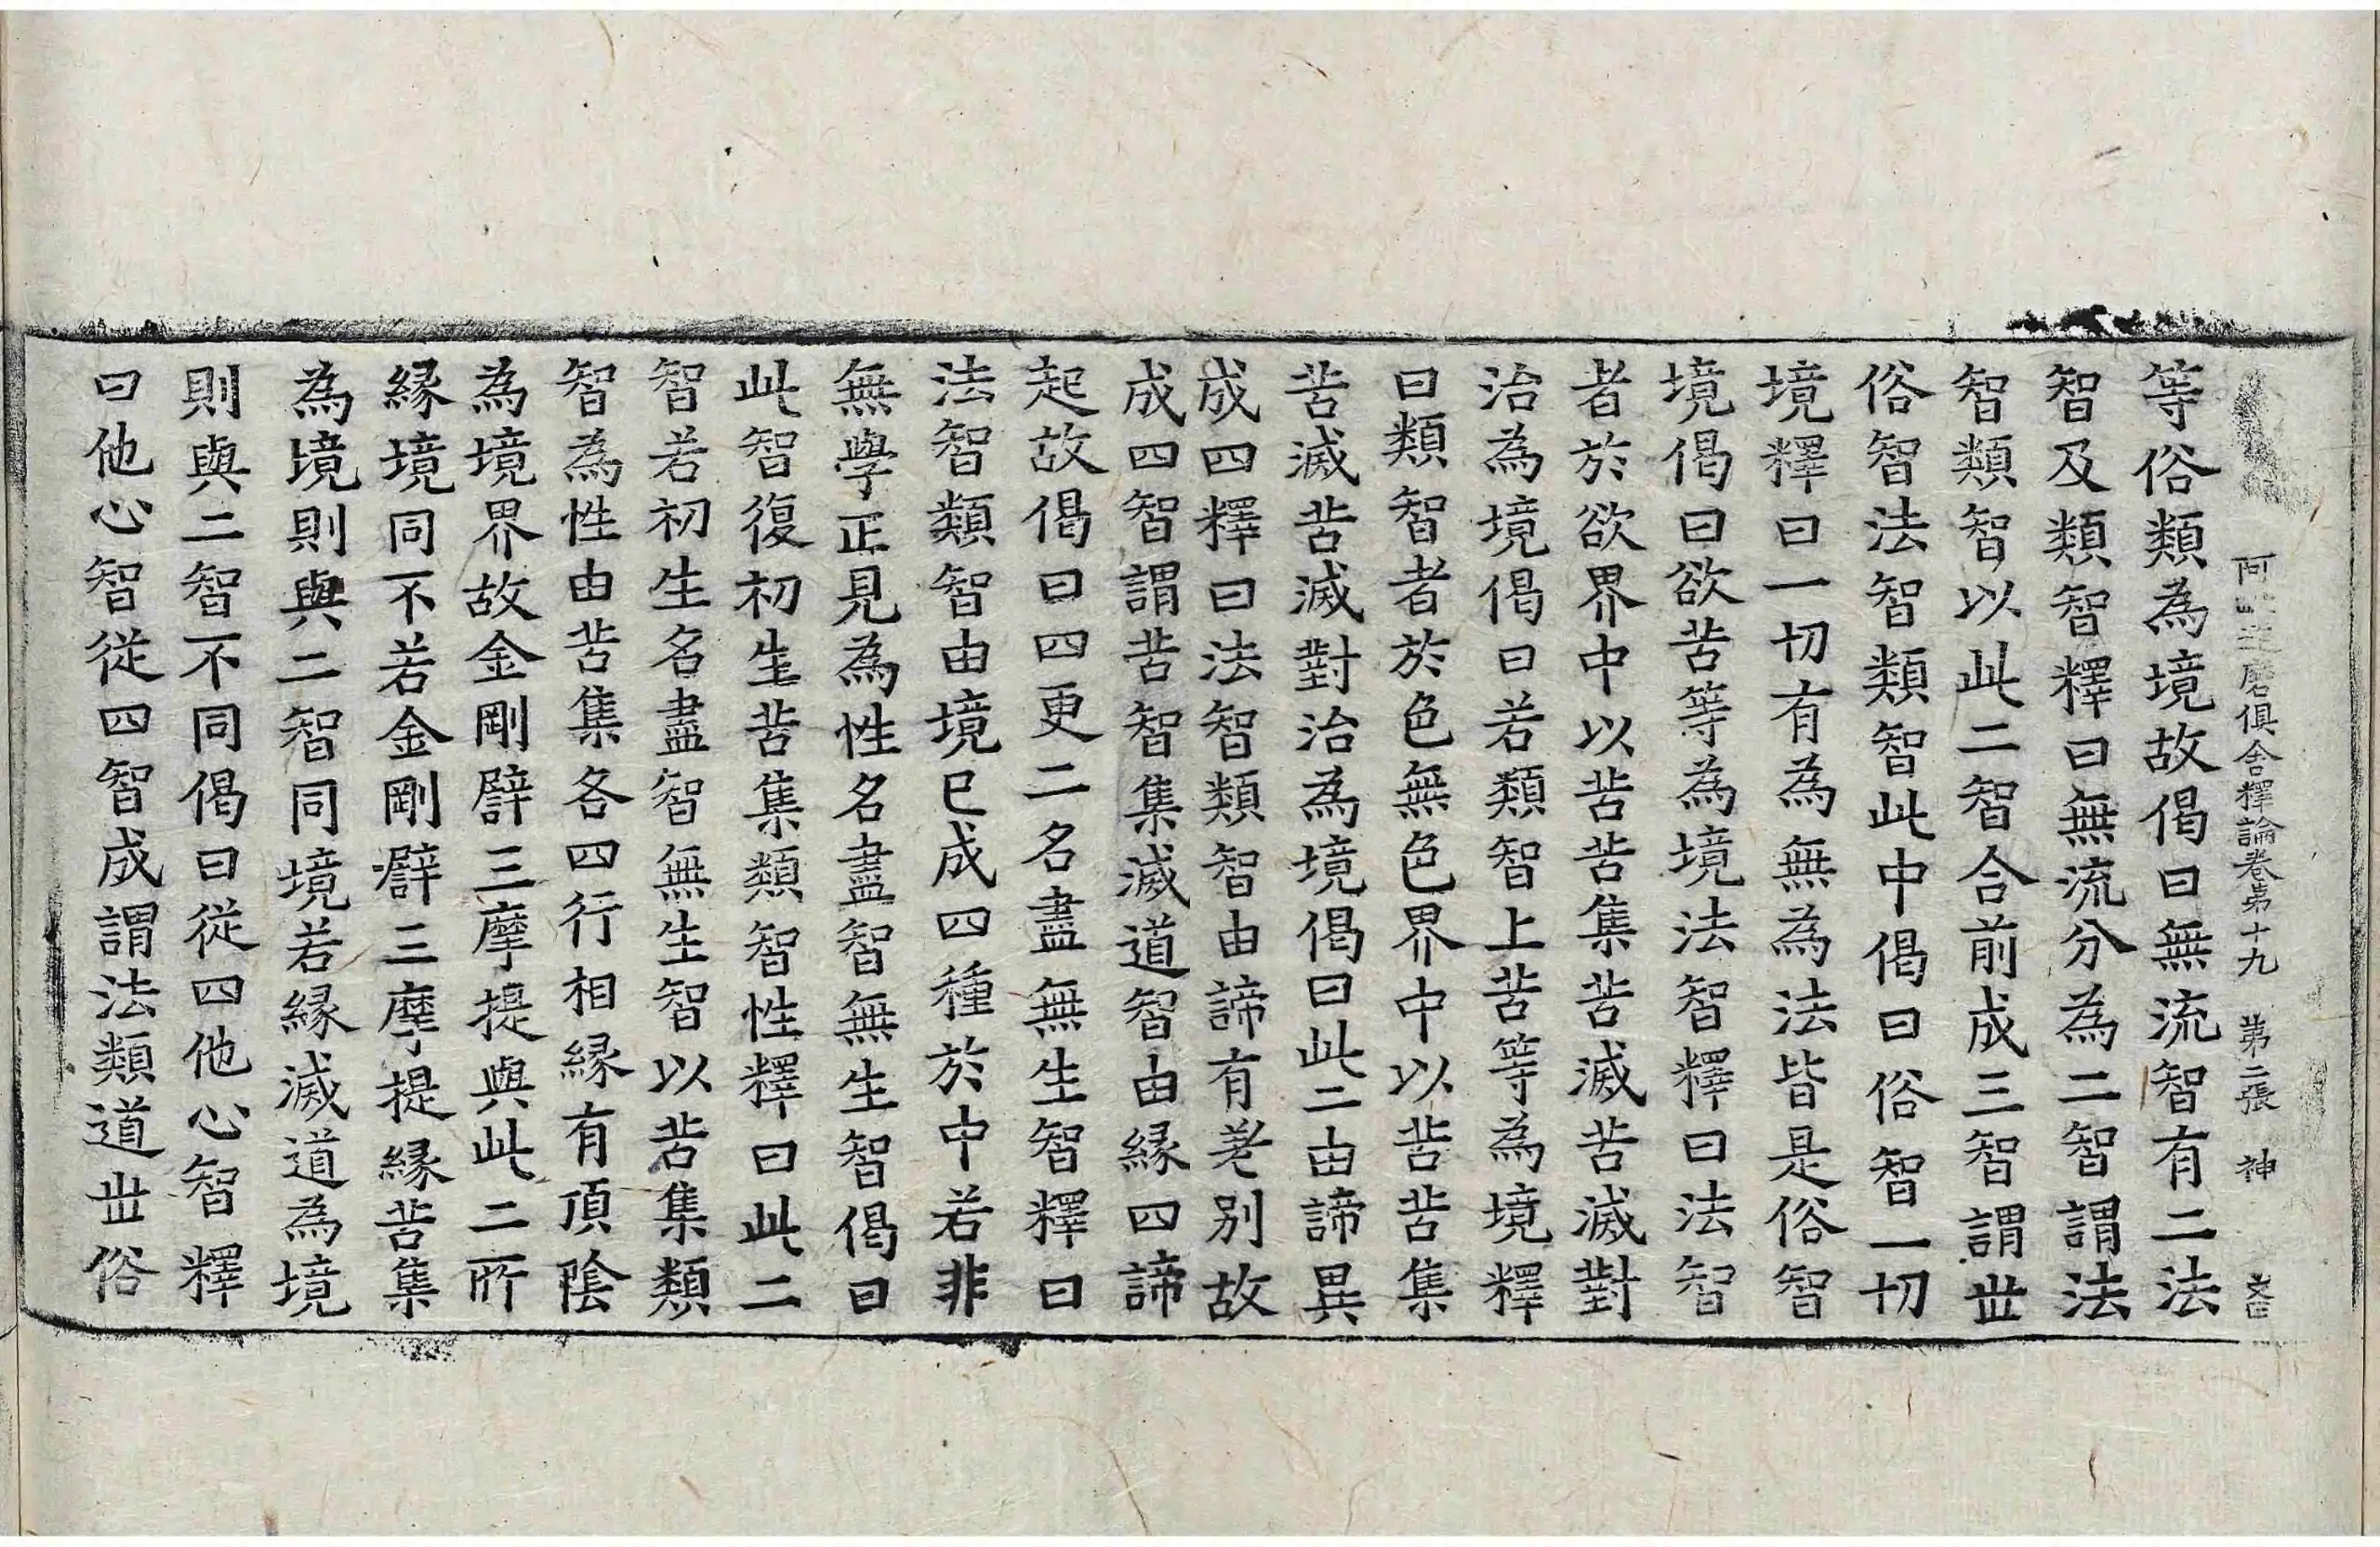 阿毗達磨俱舍釋論卷第十九　第二張　神
等俗類為境故偈曰無流智有二法
智及類智釋曰無流分為二智謂法
智類智以此二智合前成三智謂世
俗智法智類智此中偈曰俗智一切
境釋曰一切有為無為法皆是俗智
境偈曰欲苦等為境法智釋曰法智
者於欲界中以苦苦集苦滅苦滅對
治為境偈曰若類智上苦等為境釋
曰類智者於色無色界中以苦苦集
苦滅苦滅對治為境偈曰此二由諦異
成四釋曰法智類智由諦有差別故
成四智謂苦智集滅道智由緣四諦
起故偈曰四更二名盡無生智釋曰
法智類智由境已成四種於中若非
無學正見為性名盡智無生智偈曰
此智復初生苦集類智性釋曰此二
智若初生名盡智無生智以苦集類
智為性由苦集各四行相緣有頂陰
為境界故金剛譬三摩提與此二所
緣境同不若金剛譬三摩提緣苦集
為境則與二智同境若緣滅道為境
則與二智不同偈曰從四他心智釋
曰他心智從四智成謂法類道世俗